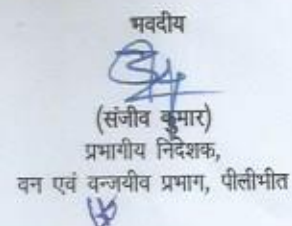 भवदीय
(संजीव कुमार)
प्रभागीय निदेशक,
वन एवं वन्जयीव प्रभाग, पीलीभीत